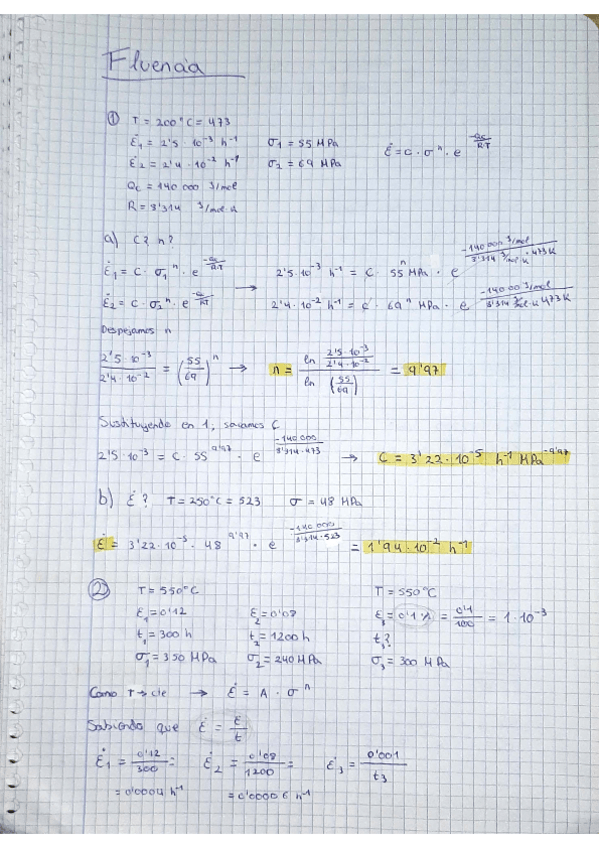 Fluencia
① T = 200°C = 473
ε̇₁ = 2'5 · 10⁻³ h⁻¹ σ₁ = 55 MPa ε̇ = C · σⁿ · e^(-Qc/R·T)
ε̇₂ = 2'4 · 10⁻² h⁻¹ σ₂ = 69 MPa
Qc = 140 000 J/mol
R = 8'314 J/mol·K
a) C? n?
ε̇₁ = C · σ₁ⁿ · e^(-Qc/R·T) → 2'5 · 10⁻³ h⁻¹ = C · 55ⁿ MPa · e^(-140 000 J/mol / 8'314 J/mol·K · 473K)
ε̇₂ = C · σ₂ⁿ · e^(-Q/RT) 2'4 · 10⁻² h⁻¹ = C · 69ⁿ MPa · e^(-140 000 J/mol / 8'314 J/mol·K 473K)
Despejamos n
2'5 · 10⁻³ / 2'4 · 10⁻² = (55/69)ⁿ → n = ln (2'5 · 10⁻³ / 2'4 · 10⁻²) / ln (55/69) = 9'97
Sustituyendo en 1, sacamos C
2'5 · 10⁻³ = C · 55^9'97 · e^(-140 000 / 8'314 · 473) → C = 3'22 · 10⁻⁵ h⁻¹ MPa^-9'97
b) ε̇? T = 250°C = 523 σ = 48 MPa
ε̇ = 3'22 · 10⁻⁵ · 48^9'97 · e^(-140 000 / 8'314 · 523) = 1'94 · 10⁻² h⁻¹
② T = 550°C T = 550°C
ε₁ = 0'12 ε₂ = 0'08 ε₃ = 0'1 % = 0'1/100 = 1 · 10⁻³
t₁ = 300 h t₂ = 1200 h t₃?
σ₁ = 350 MPa σ₂ = 240 MPa σ₃ = 300 MPa
Como T → cte → ε̇ = A · σⁿ
Sabiendo que ε̇ = ε/t
ε̇₁ = 0'12/300 = ε̇₂ = 0'08/1200 = ε̇₃ = 0'001/t₃
= 0'0004 h⁻¹ = 0'00006 h⁻¹